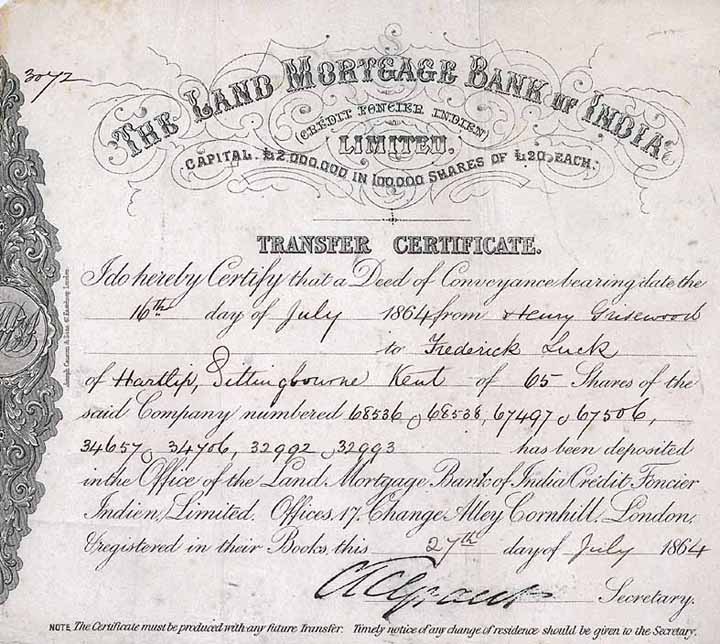 3072
THE LAND MORTGAGE BANK OF INDIA
(CRÉDIT FONCIER INDIEN)
LIMITED.
CAPITAL. £2,000,000 IN 100,000 SHARES OF £20, EACH.
TRANSFER CERTIFICATE.
I do hereby Certify that a Deed of Conveyance bearing date the
16th day of July 1864 from Henry Grisewood
to Frederick Luck
of Hartlip, Sittingbourne Kent of 65 Shares of the
said Company numbered 68536 68538, 67497 67506,
34657 34706, 32992 32993 has been deposited
in the Office of the Land Mortgage Bank of India Crédit Foncier
Indien, Limited. Offices, 17, Change Alley Cornhill, London,
& registered in their Books this 27th day of July 1864
Secretary.
NOTE, The Certificate must be produced with any future Transfer. Timely notice of any change of residence should be given to the Secretary.